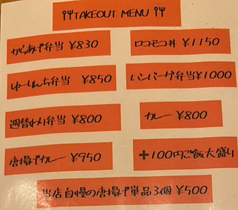 TAKEOUT MENU
からあげ弁当 ¥830
ロコモコ丼 ¥1150
ゆーりんち弁当 ¥850
ハンバーグ弁当 ¥1000
週替わり弁当 ¥800
カレー ¥800
唐揚げカレー ¥950
+100円ご飯大盛り
当店自慢の唐揚げ単品3個 ¥500